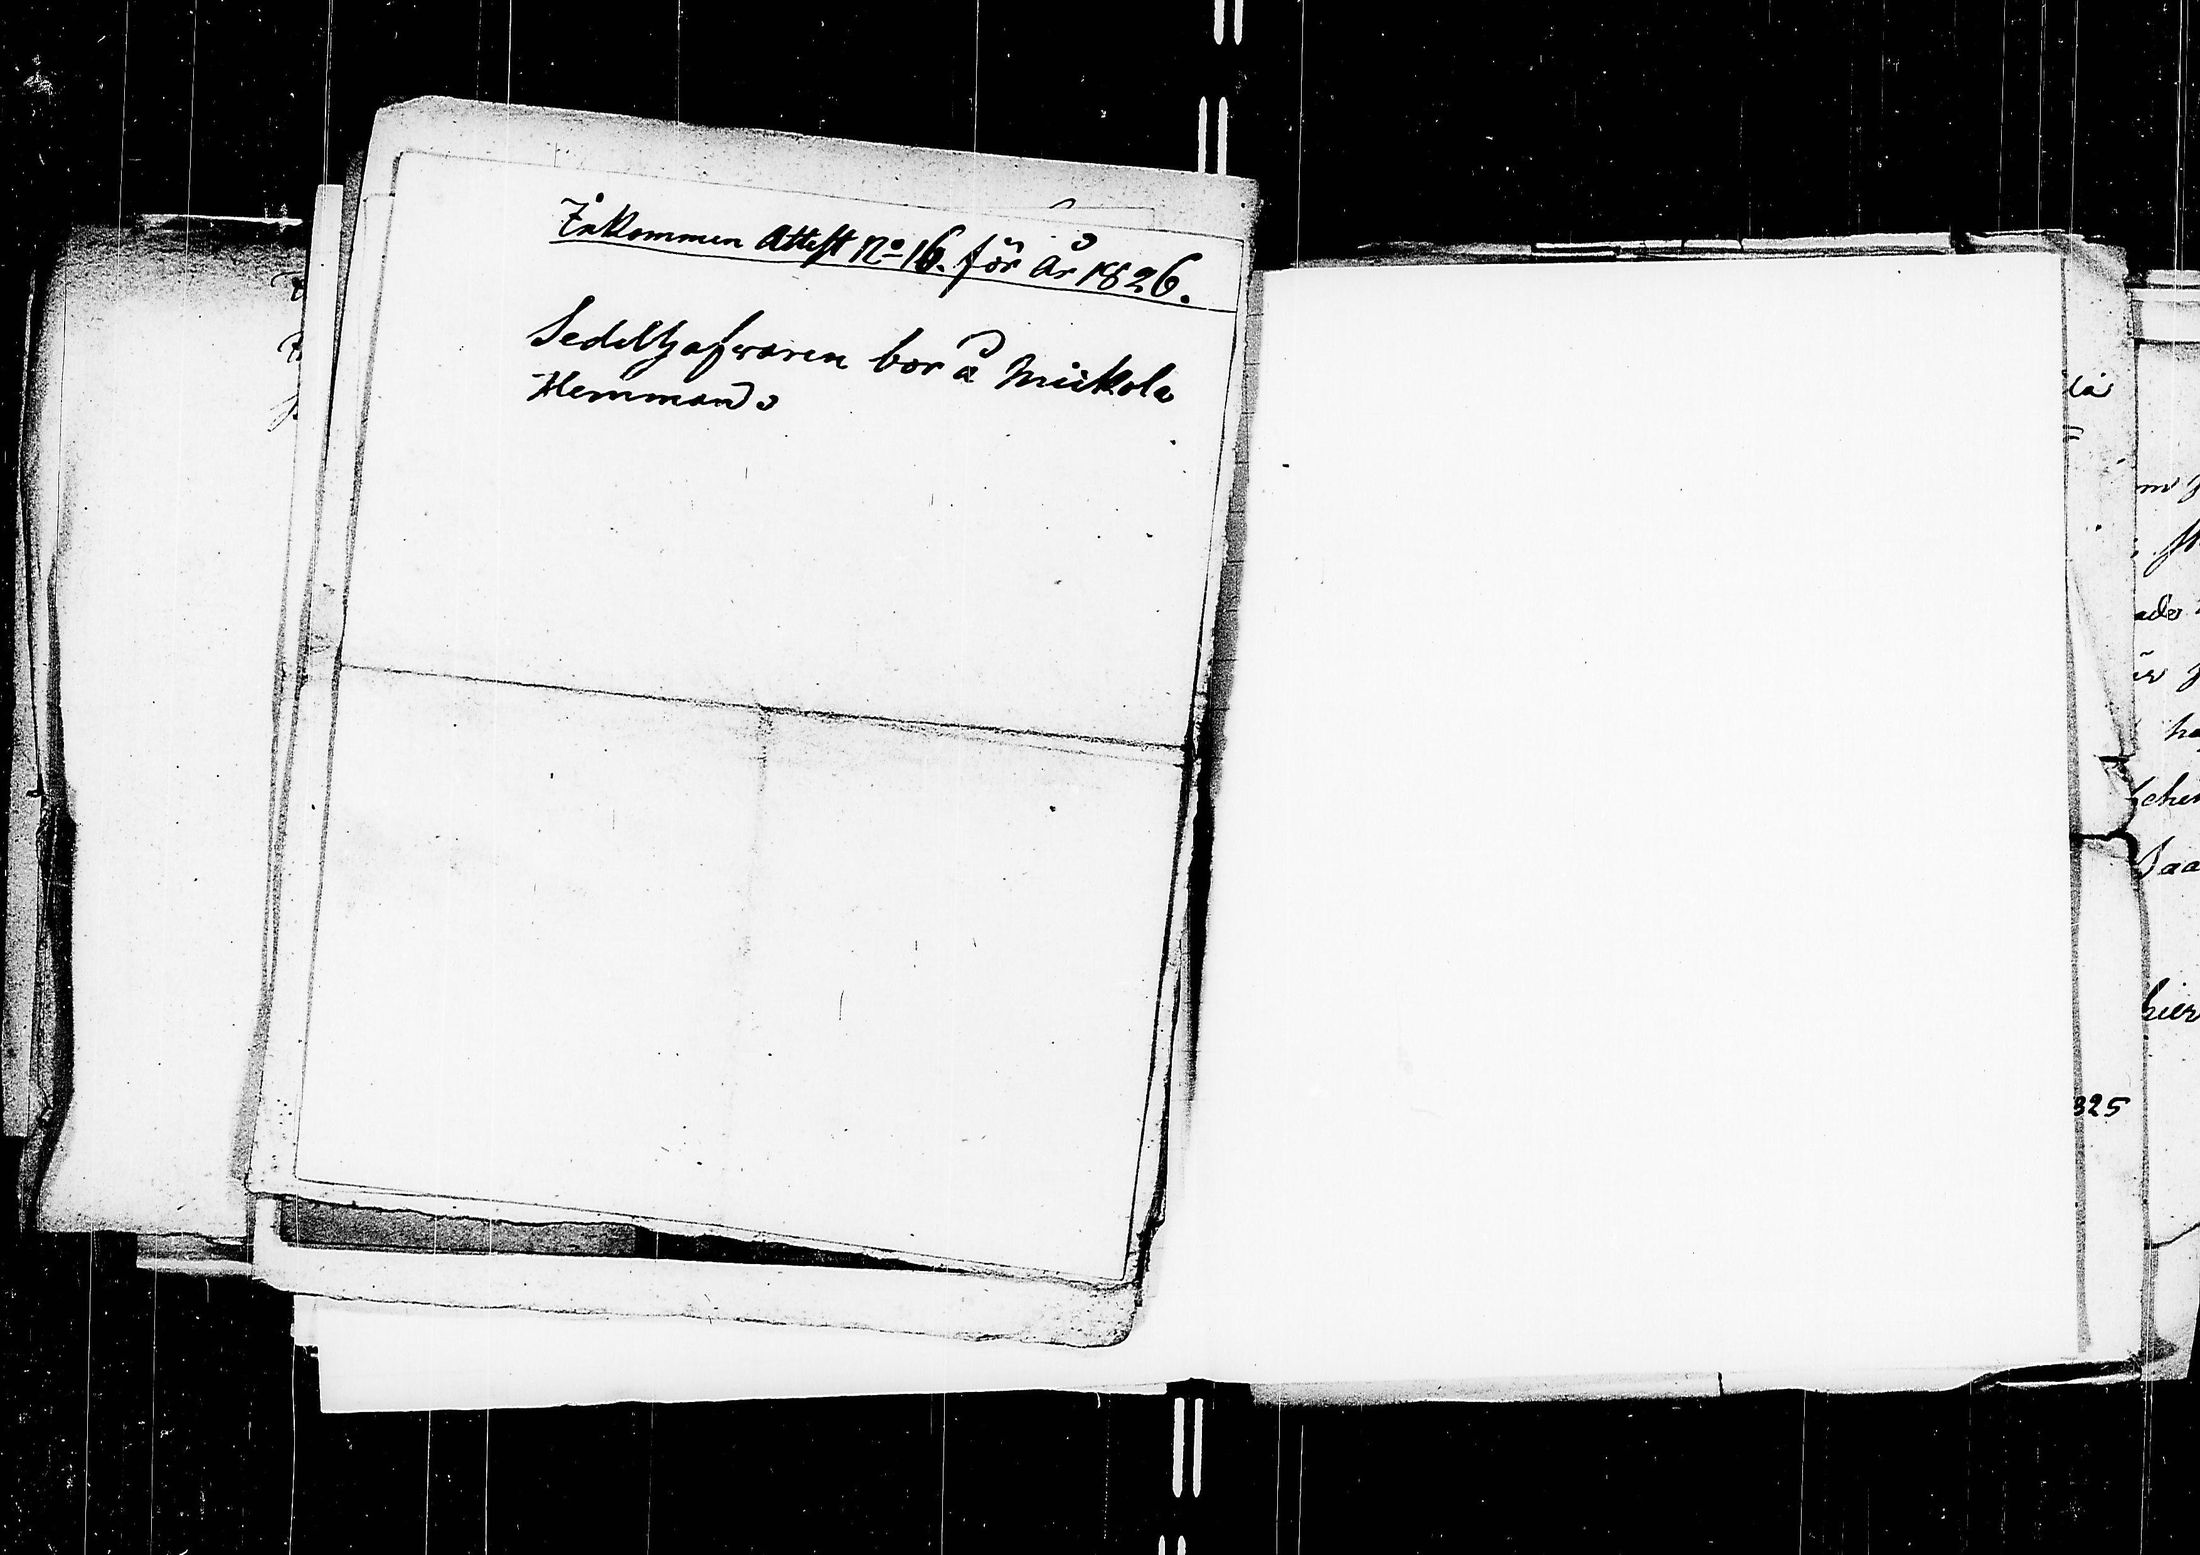 Inkommen Attest No 16. för År 1826.
Sedelhafwaren bor å Miikola
Hemman.
325